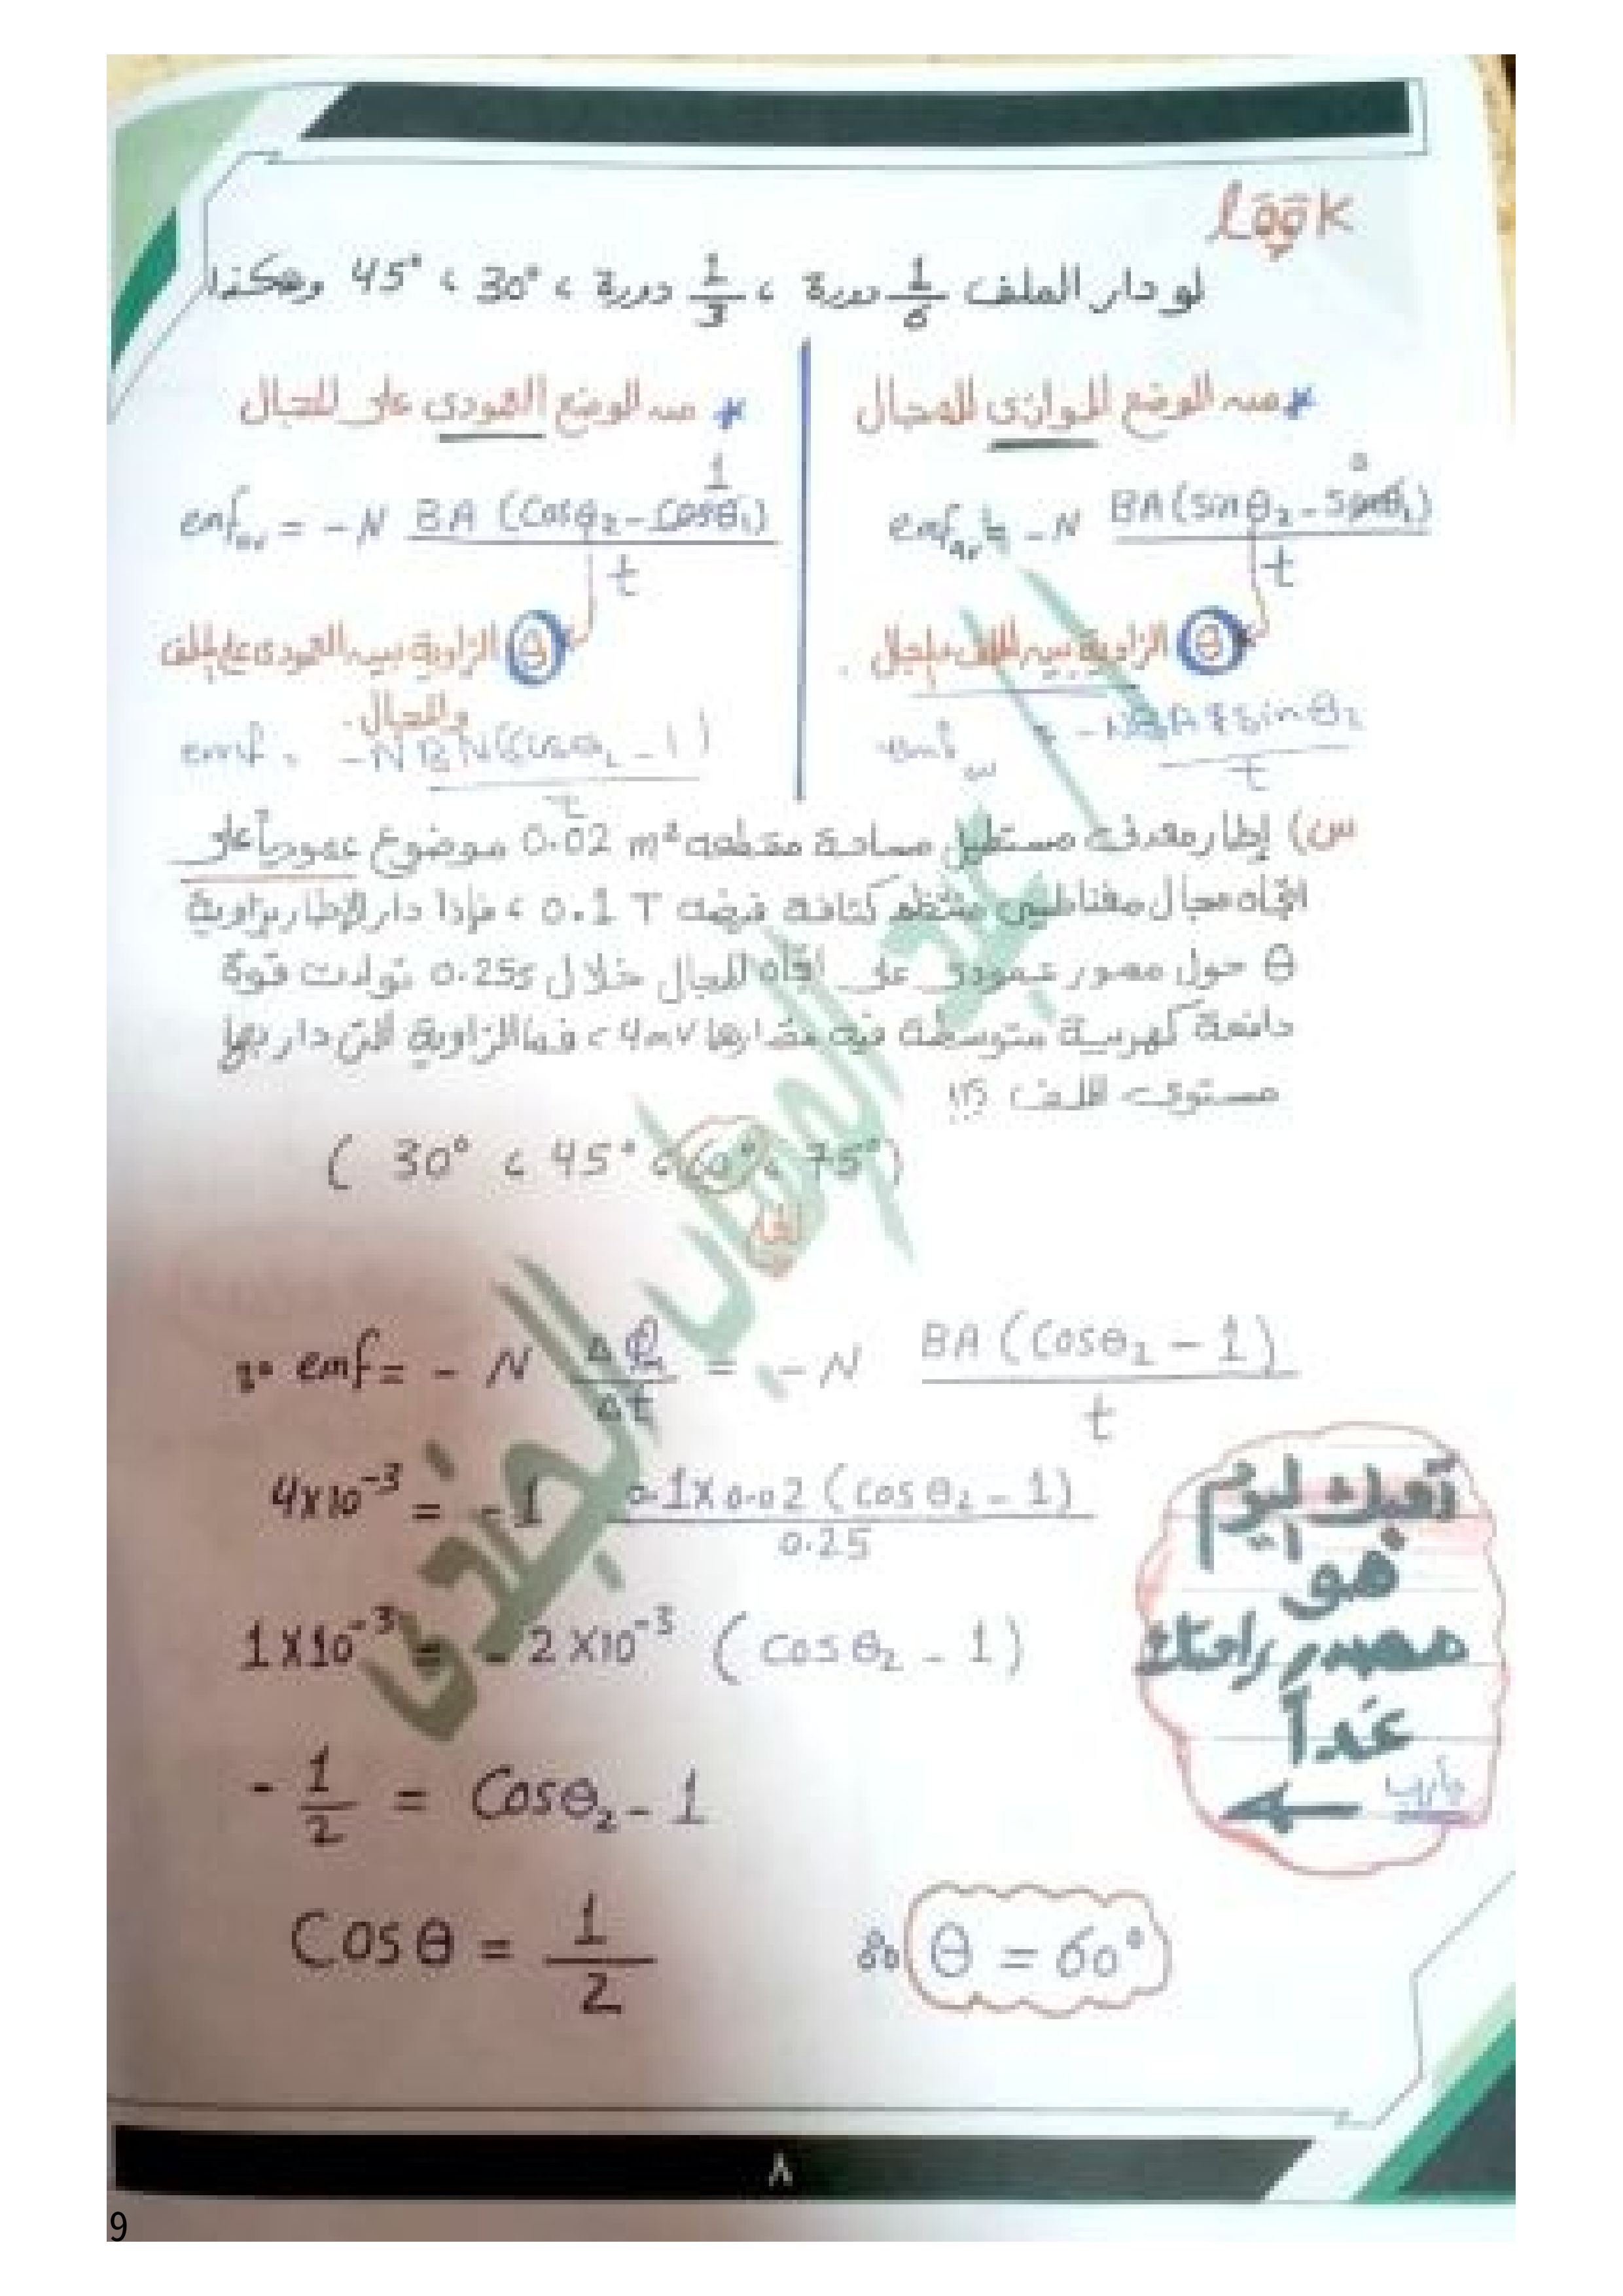 Look
لو دار الملف 1/6 دورة ، 1/3 دورة ، 30° ، 45° وهكذا
* من الوضع الموازى للمجال
emf_av = -N BA (sin θ₂ - sin θ₁) / t
0
θ الزاوية بين الملف والمجال
emf = -NBA sin θ₂ / t
* من الوضع العمودى على المجال
1
emf_av = -N BA (Cos θ₂ - Cos θ₁) / t
θ الزاوية بين العمودى على الملف
والمجال.
س) إطار معدنى مستطيل مساحة مقطعه 0.02 m² موضوع عمودياً على
اتجاه مجال مغناطيسى منتظم كثافة فيضه 0.1 T ، فإذا دار الإطار بزاوية
θ حول محور عمودى على اتجاه المجال خلال 0.25s تولدت قوة
دافعة كهربية متوسطة فيه مقدارها 4mV ، فما الزاوية التى دار بها
مستوى الملف ؟!!
( 30° ، 45° ، 60° ، 75° )
الحل
∵ emf = - N ΔΦm / Δt = - N BA (Cos θ₂ - 1) / t
4×10⁻³ = -1 0.1×0.02 (Cos θ₂ - 1) / 0.25
1×10⁻³ = - 2×10⁻³ (Cos θ₂ - 1)
- 1/2 = Cos θ₂ - 1
Cos θ = 1/2
∴ θ = 60°
تعبك اليوم
هو
مصدر راحتك
غداً
٨
9